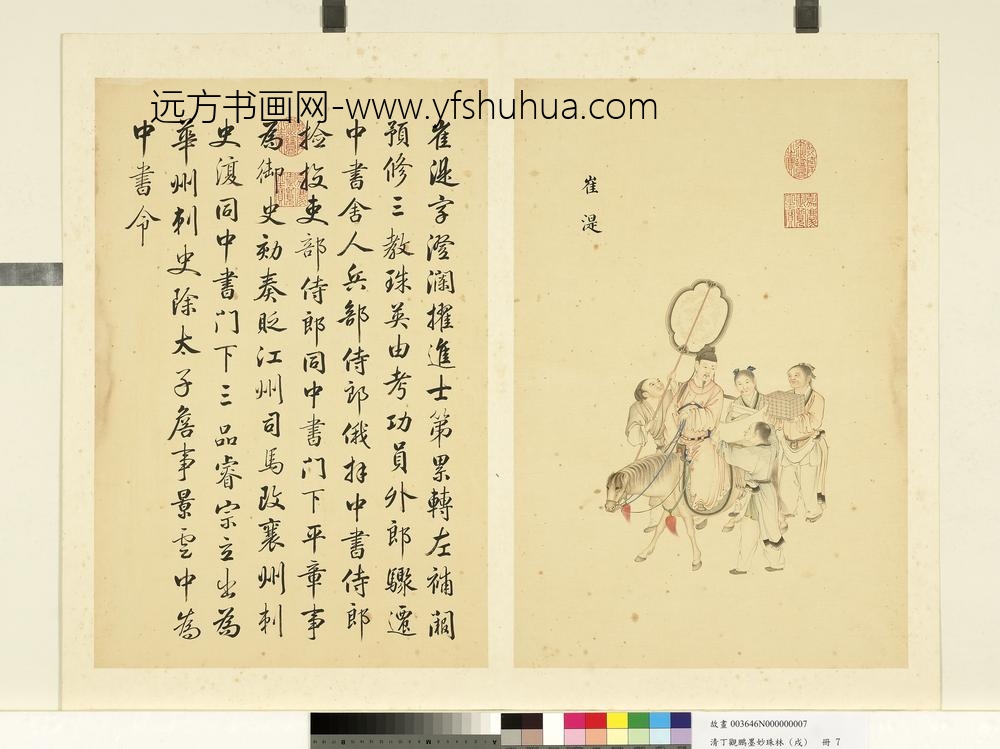 远方书画网-www.yfshuhua.com
崔湜
崔湜字澄瀾擢進士第累轉左補闕
預修三教珠英由考功員外郎驟遷
中書舍人兵部侍郎俄拜中書侍郎
檢挍吏部侍郎同中書門下平章事
為御史劾奏貶江州司馬改襄州刺
史復同中書門下三品睿宗立出為
華州刺史除太子詹事景雲中為
中書令
故畫 003646N000000007
清丁觀鵬墨妙珠林(戌) 冊 7